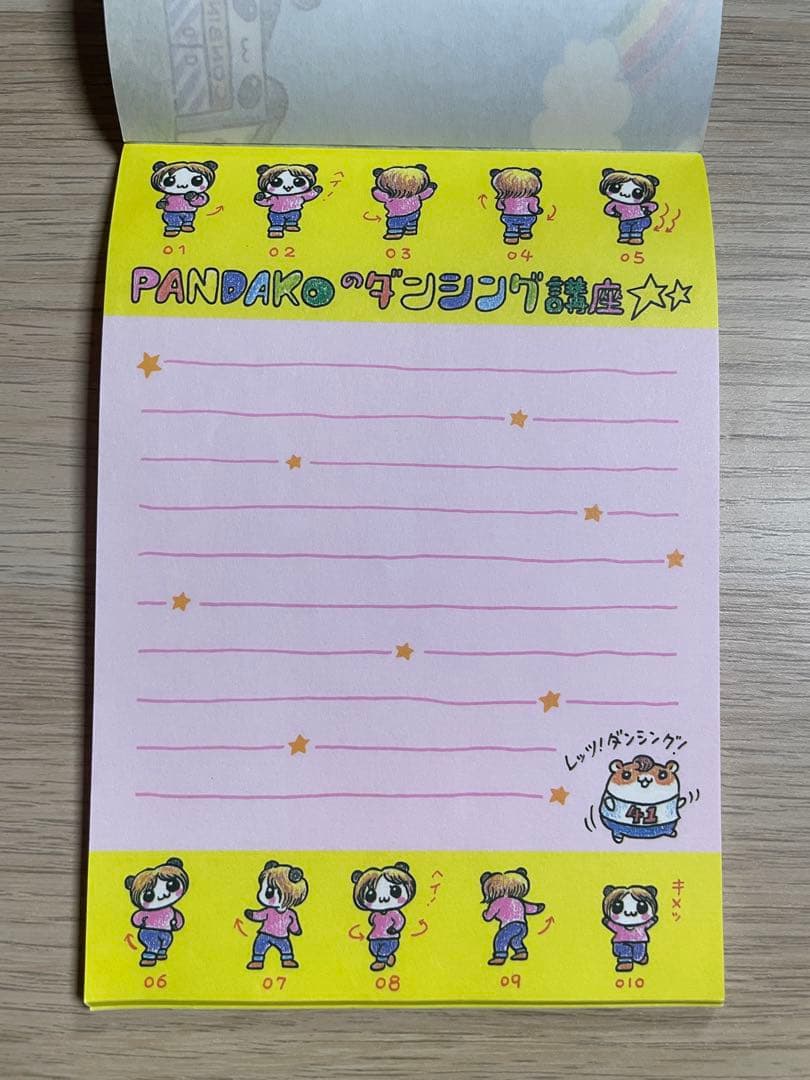 ヘイ!
01 02 03 04 05
PANDAKOのダンシング講座
レッツ!ダンシング!
41
ヘイ!
キメッ
06 07 08 09 010